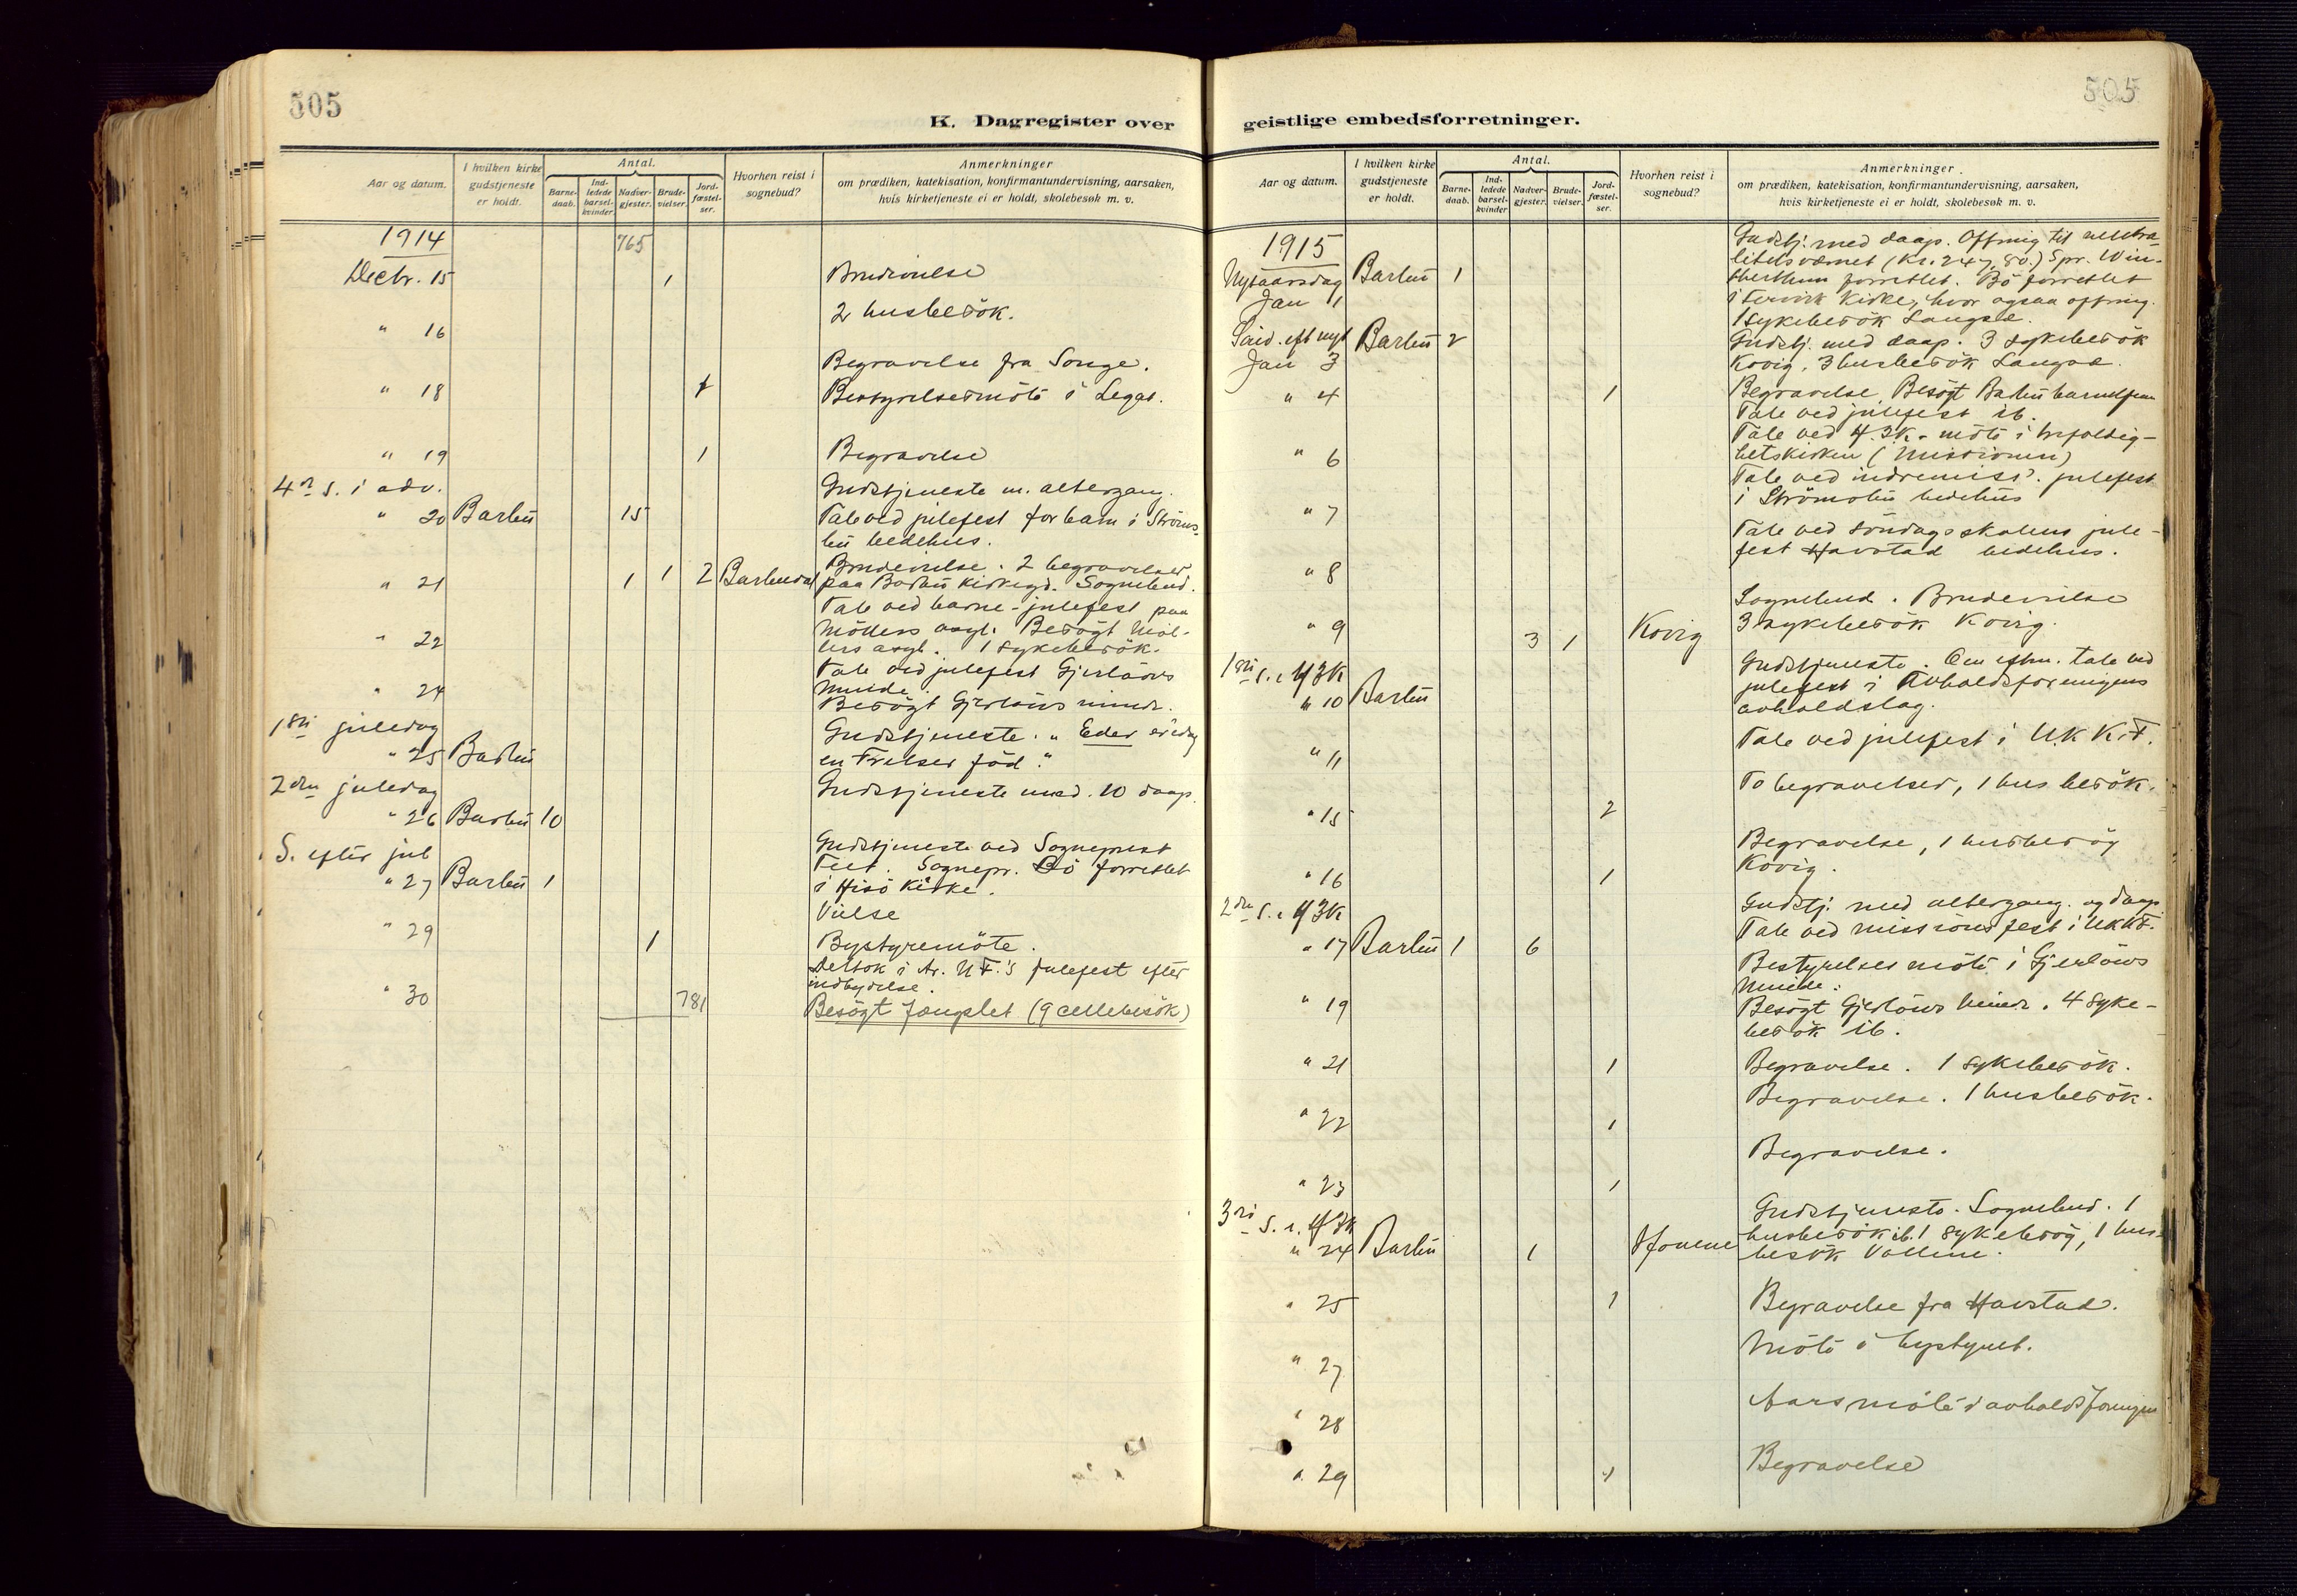 505
K. Dagregister over
Aar og datum.
I hvilken kirke gudstjeneste er holdt.
Antal.
Barne-daab.
Ind-ledede barsel-kvinder.
Nadver-gjester.
Brude-vielser.
Jord-fæstel-ser.
Hvorhen reist i sognebud?
Anmerkninger
om prædiken, katekisation, konfirmantundervisning, aarsaken,
hvis kirketjeneste ei er holdt, skolebesøk m. v.
1914 765
Decbr. 15 1 Brudevielse
2 husbesök.
" 16
Begravelse fra Songe.
" 18 1 Bestyrelsesmöte i Legat.
" 19 1 Begravelse
4de S. i adv. Gudstjeneste m. altergang.
" 20 Barbu 15 Tale ved julefest for barn i Ströms-
bu bedehus.
Brudevielse. 2 begravelser
" 21 1 1 2 Barbudal paa Barbu kirkegd. Sognebud.
Tale ved barne-julefest paa
" 22 Möllers asyl. Besögt Möl-
lers asyl. 1 sykebesök.
Tale ved julefest Gjerlöws
" 24 Minde.
Besögt Gjerlöws minde.
1ste juledag Gudstjeneste. "Eder er idag
" 25 Barbu en Frelser föd."
2den juledag Gudstjeneste med 10 daap.
" 26 Barbu 10
S. efter jul Gudstjeneste ved Sogneprest
" 27 Barbu 1 Feet. Sognepr. Bö forrettet
i Hisö Kirke.
Vielse
" 29 1 Bystyremöte.
Deltok i Ar. U.F.'s julefest efter
" 30 indbydelse.
781 Besögt fængslet (9 cellebesök)
505
geistlige embedsforretninger.
Aar og datum.
I hvilken kirke gudstjeneste er holdt.
Antal.
Barne-daab.
Ind-ledede barsel-kvinder
Nadver-gjester.
Brude-vielser.
Jord-fæstel-ser.
Hvorhen reist i sognebud?
Anmerkninger.
om prædiken, katekisation, konfirmantundervisning, aarsaken,
hvis kirketjeneste ei er holdt, skolebesøk m. v.
1915 Gudstj. med daap. Offring til neutra-
litetsværnet (Kr. 247,80.) Spr. Win-
Nytaarsdag Barbu 1 forrettet. Bö forrettet
Jan 1 i Kirke, hvor ogsaa offring.
1 sykebesök Langsæ.
Sönd. eft nyt Barbu 2 Gudstj. med daap. 3 sykebesök
Jan 3 Kovig, 3 husbesök Langsæ.
" 4 1 Begravelse. Besögt Barbu barnehjem
Tale ved julefest ib.
Tale ved H.3.K. möte i trefoldig-
" 6 hetskirken (Missionen)
Tale ved indremiss. julefest
" 7 i Strömsbu bedehus
Tale ved söndagsskolens jule-
fest Havstad bedehus.
" 8
Sognebud. Brudevielse
" 9 3 1 Kovig 3 sykebesök Kovig.
1ste S. e. H3K Gudstjeneste. Om eftm. tale ved
" 10 Barbu julefest i Avholdsforeningens
avholdslag.
" 11 Tale ved julefest i U.K.K.F.
To begravelser, 1 husbesök.
" 15 2
Begravelse, 1 husbesög
" 16 1 Kovig.
2den S. e. H3K Gudstj. med altergang. og daap
" 17 Barbu 1 6 Tale ved missionsfest i UKKF.
Bestyrelses möte i Gjerlöws
Minde.
" 19 Besögt Gjerlöws Minde. 4 syke-
besök ib.
" 21 1 Begravelse. 1 sykebesök.
" 22 1 Begravelse. 1 husbesök.
" 23 1 Begravelse.
3die S. e. H3K Gudstjeneste. Sognebud. 1
husbesök ib. 1 sykebesög, 1 hus-
" 24 Barbu 1 besök Vollene.
" 25 1 Begravelse fra Havstad.
" 27 Möte i bystyret.
" 28 Aarsmöte i avholdsforeningen
" 29 1 Begravelse